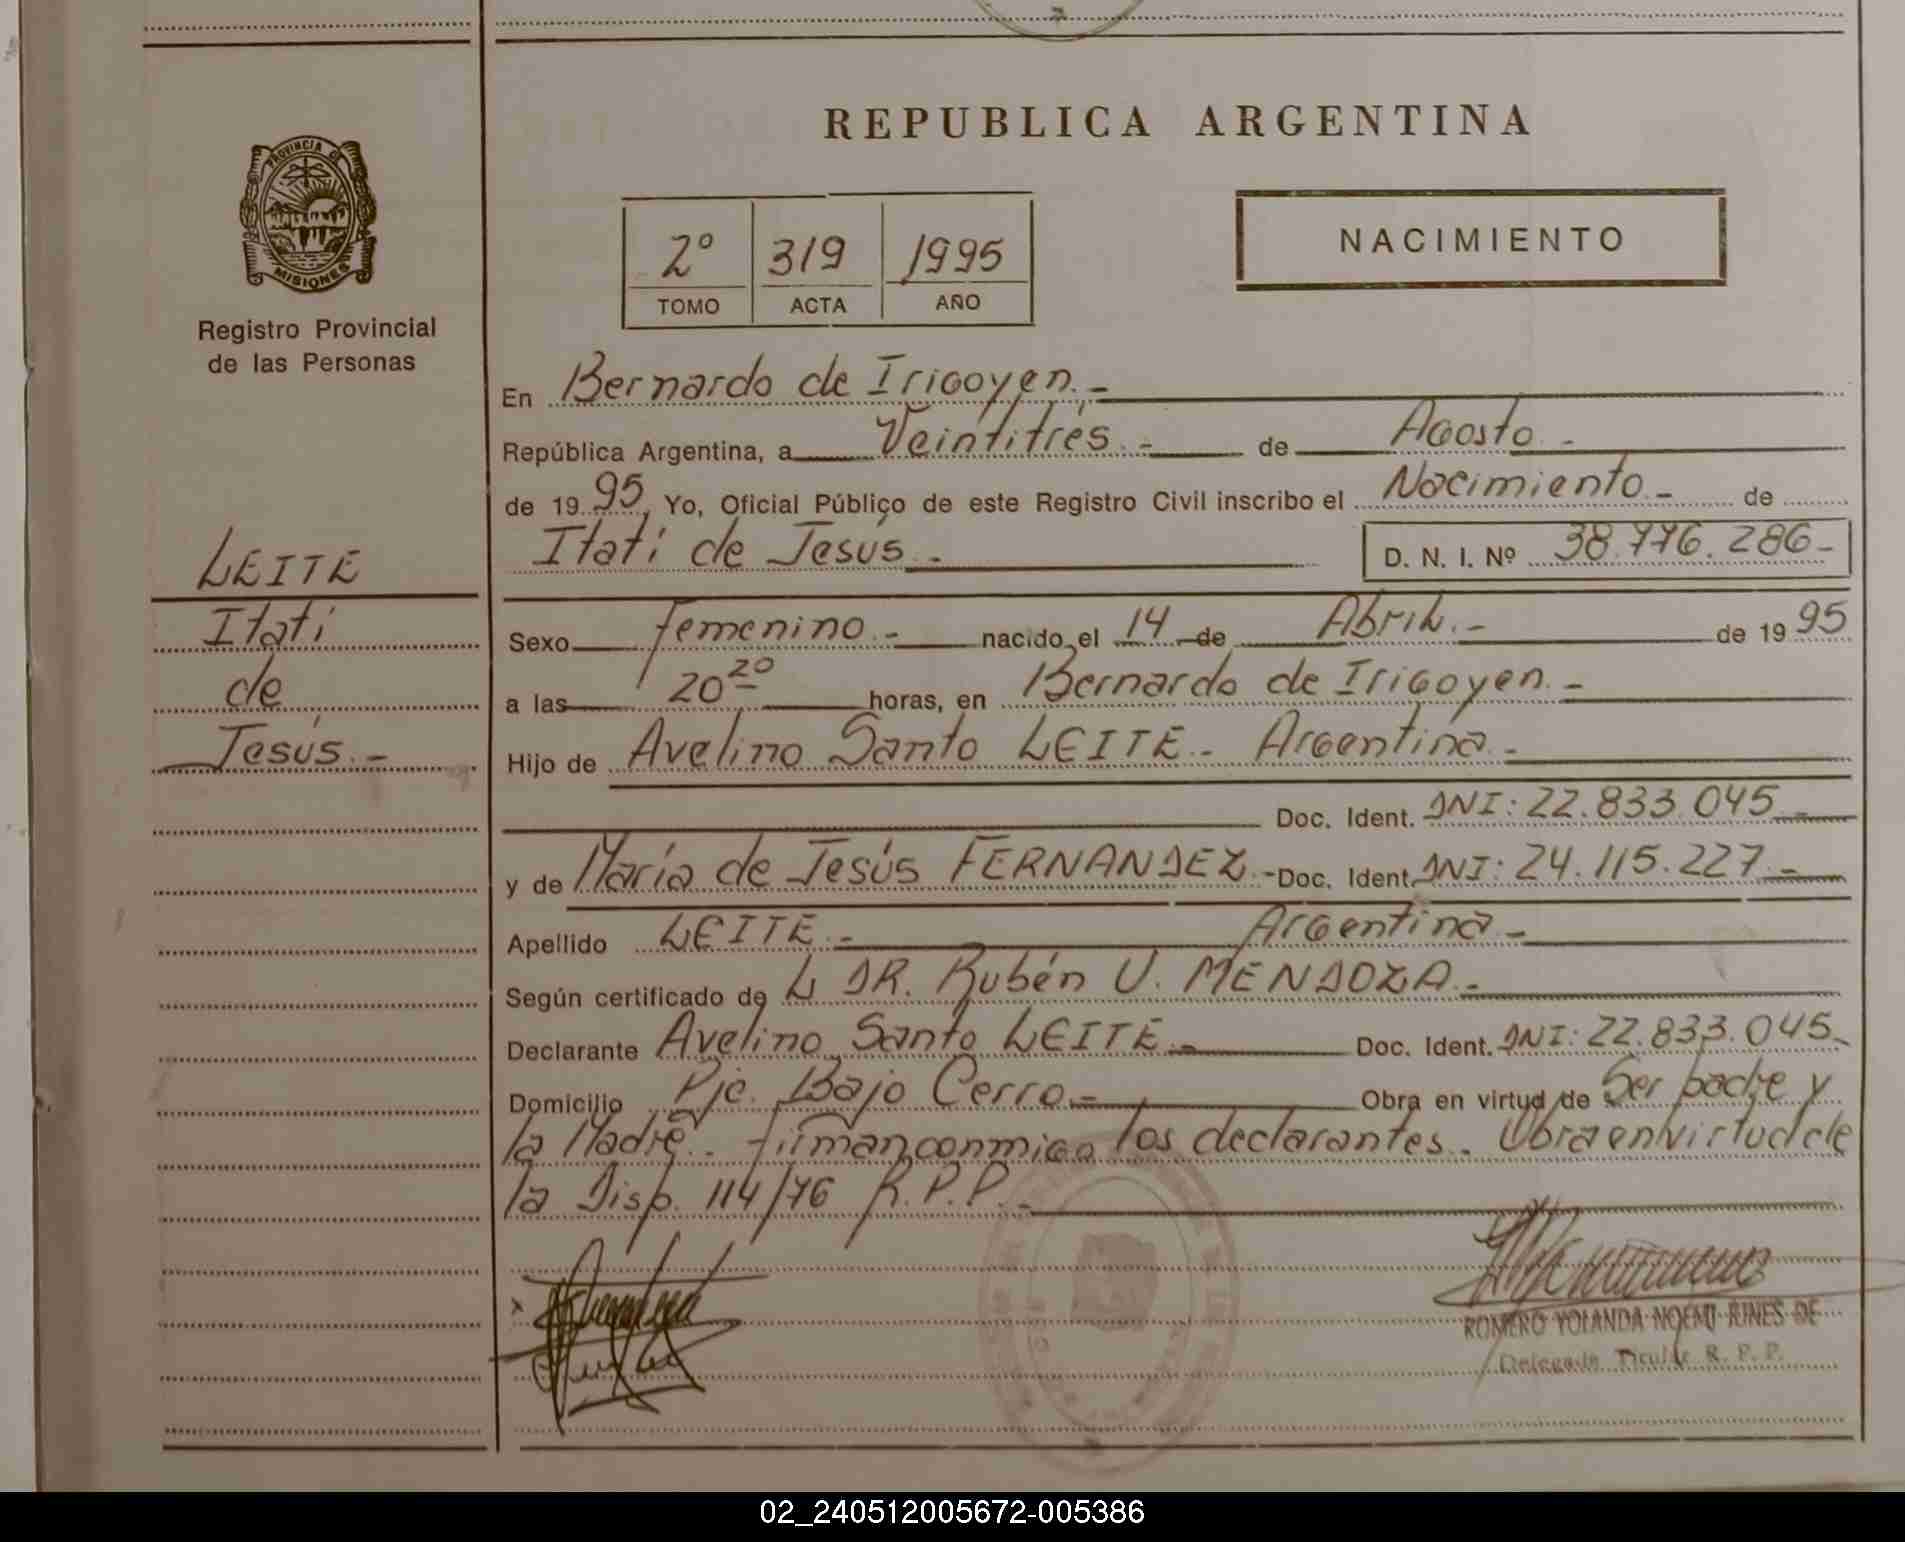 PROVINCIA DE
MISIONES
Registro Provincial
de las Personas
LEITE
Itatí
de
Jesús.-
REPUBLICA ARGENTINA
2º 319 1995
TOMO ACTA AÑO
NACIMIENTO
En Bernardo de Irigoyen.-
República Argentina, a Veintitrés.- de Agosto.-
de 1995, Yo, Oficial Público de este Registro Civil inscribo el Nacimiento.- de
Itatí de Jesús.- D. N. I. Nº 38.776.286-
Sexo femenino.- nacido el 14 de Abril.- de 1995
a las 20 20 horas, en Bernardo de Irigoyen.-
Hijo de Avelino Santo LEITE.- Argentina.-
Doc. Ident. DNI: 22.833.045.-
y de María de Jesús FERNANDEZ.- Doc. Ident. DNI: 24.115.227.-
Apellido LEITE.- Argentina.-
Según certificado de L DR. Rubén U. MENDOZA.-
Declarante Avelino Santo LEITE.- Doc. Ident. DNI: 22.833.045.-
Domicilio Pje. Bajo Cerro.- Obra en virtud de Ser padre y
la Madre.. firman conmigo los declarantes. Obra en virtud de
la Disp. 114/76 R.P.P.-
ROMERO YOLANDA NOEMI DE
Delegada Titular R. P. P.
02_240512005672-005386